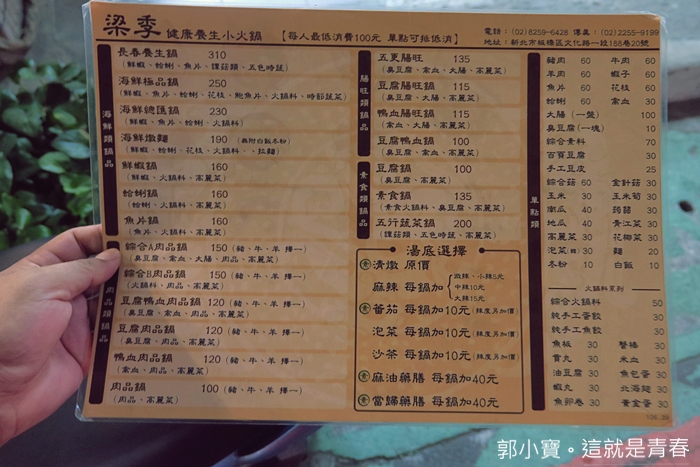 梁季 健康養生小火鍋 【每人最低消費100元 單點可抵低消】
電話：(02)8259-6428 傳真：(02)2255-9199
地址：新北市板橋區文化路一段188巷20號
海鮮類鍋品
長春養生鍋 310
(鮮蝦、蛤蜊、魚片、課菇類、五色時蔬)
海鮮極品鍋 250
(鮮蝦、魚片、蛤蜊、花枝、鮑魚片、火鍋料、時節蔬菜)
海鮮總匯鍋 230
(鮮蝦、魚片、蛤蜊、火鍋料)
海鮮燉麵 190 (無附白飯冬粉)
(鮮蝦、蛤蜊、花枝、火鍋料、、拉麵)
鮮蝦鍋 160
(鮮蝦、火鍋料、高麗菜)
蛤蜊鍋 160
(蛤蜊、火鍋料、高麗菜)
魚片鍋 160
(魚片、火鍋料、高麗菜)
肉品類鍋品
綜合A肉品鍋 150 (豬、牛、羊 擇一)
(臭豆腐、米血、大腸、肉品、高麗菜)
綜合B肉品鍋 150 (豬、牛、羊 擇一)
(肉品、蛤蜊、火鍋料、高麗菜)
豆腐鴨血肉品鍋 120 (豬、牛、羊 擇一)
(臭豆腐、米血、肉品、高麗菜)
豆腐肉品鍋 120 (豬、牛、羊 擇一)
(臭豆腐、肉品、高麗菜)
鴨血肉品鍋 120 (豬、牛、羊 擇一)
(米血、肉品、高麗菜)
肉品鍋 100 (豬、牛、羊 擇一)
(肉品、高麗菜)
腸旺類鍋品
五更腸旺 135
(臭豆腐、米血、大腸、高麗菜)
豆腐腸旺鍋 115
(臭豆腐、大腸、高麗菜)
鴨血腸旺鍋 115
(米血、大腸、高麗菜)
豆腐鴨血鍋 100
(臭豆腐、米血、高麗菜)
素食類鍋品
豆腐鍋 100
(臭豆腐、高麗菜)
素食鍋 135
(素食火鍋料、臭豆腐、高麗菜)
五行蔬菜鍋 200
(課菇類、五色時蔬、高麗菜)
湯底選擇
素 清燉 原價
麻辣 每鍋加
微辣、小辣5元
中辣10元
大辣15元
素 番茄 每鍋加10元 (辣度另加價)
泡菜 每鍋加10元 (辣度另加價)
沙茶 每鍋加10元 (辣度另加價)
素 麻油藥膳 每鍋加40元
素 當歸藥膳 每鍋加40元
單點類
豬肉 60 牛肉 60
羊肉 60 蝦子 60
魚片 60 花枝 60
蛤蜊 60 米血 30
大腸 (一盤) 100
臭豆腐 (一塊) 30
綜合素料 70
百頁豆腐 30
手工豆皮 25
綜合菇 60 金針菇 30
玉米 30 玉米筍 30
南瓜 40 蒟蒻 30
地瓜 40 青江菜 30
高麗菜 30 花椰菜 30
泡菜 30 麵 20
冬粉 10 白飯 10
(火鍋料系列)
綜合火鍋料 50
純手工蛋餃 30
純手工魚餃 30
魚板 30 蟹棒 30
貢丸 30 米血 30
油豆腐 30 魚包蛋 30
蝦丸 30 北海翅 30
魚卵卷 30 黃金蛋 30
郭小寶。這就是青春